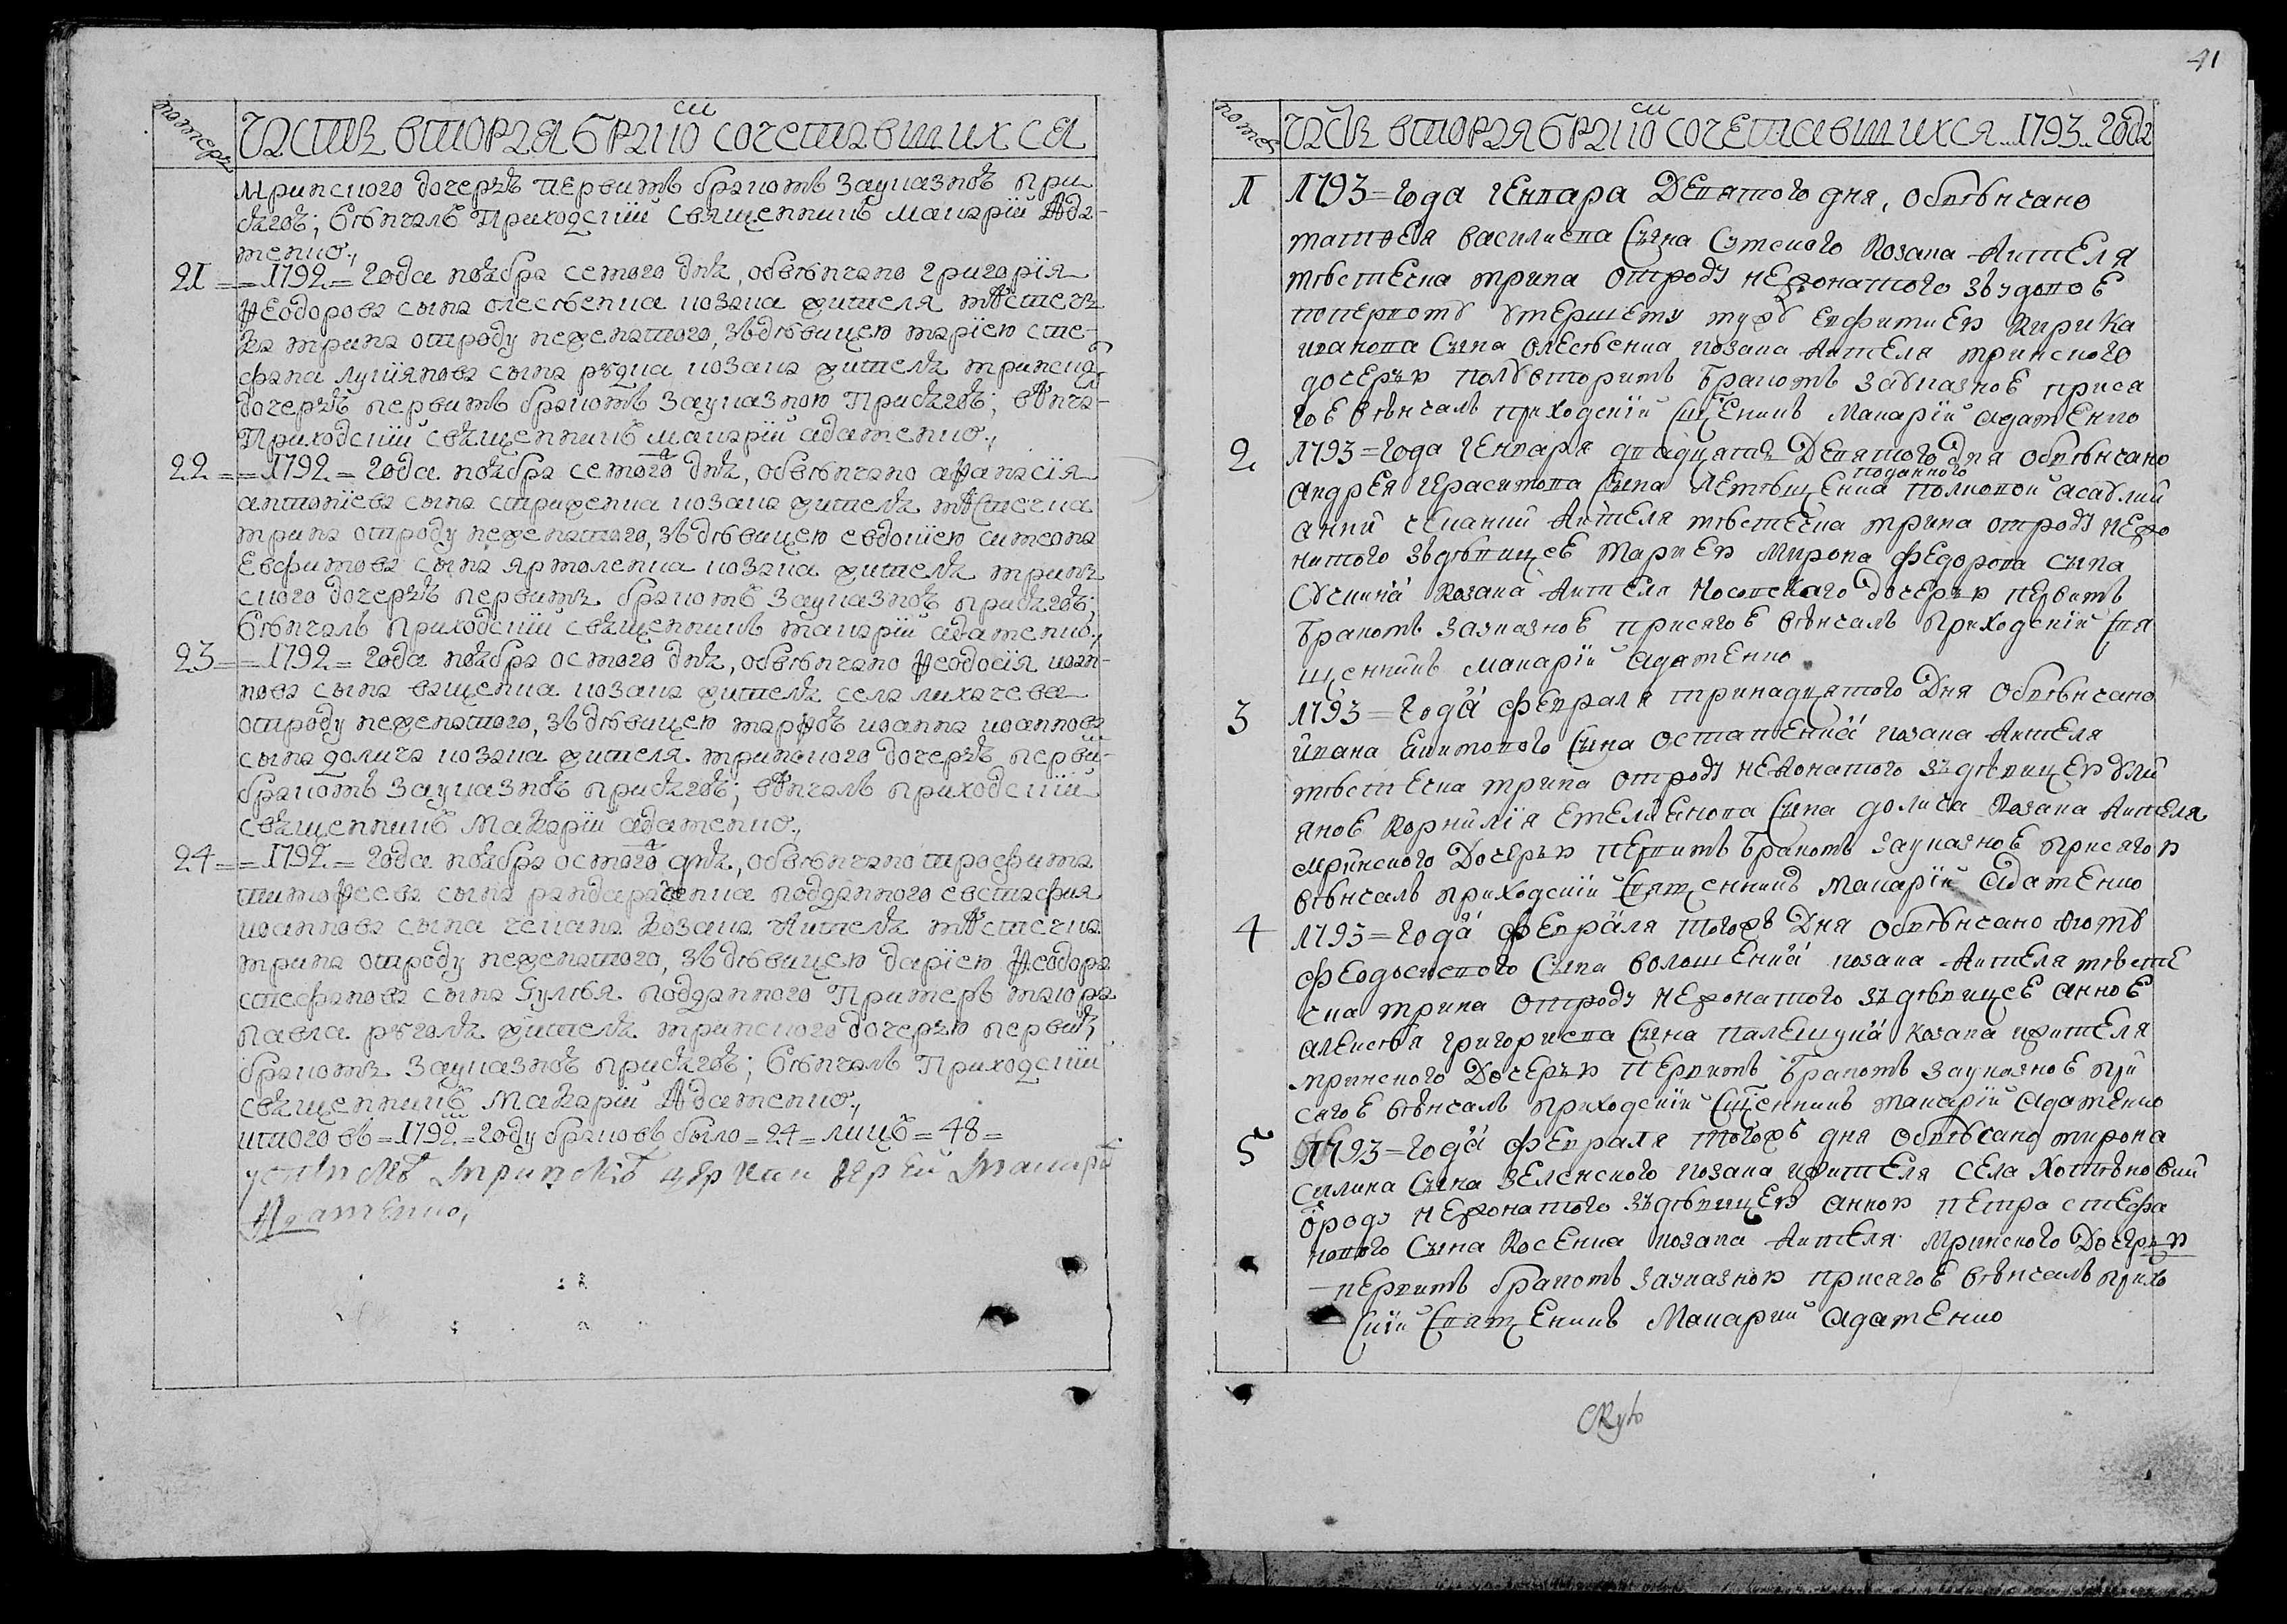 номеръ
Часть вторая бракю сочетавшихся
мринского дочерѣ первимъ бракомъ зауказноѣ при
сягоѣ; Вѣнчалъ Приходскій священникъ Макарій Ада-
менко.,
21 = = 1792 = года ноября семого дня, обвѣнчано григорія
Ѳеодорова сына олесѣенка козака жителя мѣстечь
ка мрина отроду неженатого, зъ дѣвицею маріею сте-
фана лукіянова сына рудка козака жителя мринско
дочерѣ первимъ бракомъ зауказною Присягоѣ; вѣнча-
Приходскій священникъ макарій адаменко.,
22 = = 1792 = года ноября семого дня, обвѣнчано аѲанасія
антоніева сына стриженка козака жителя мѣстечка
мрина отроду неженатого, зъ дѣвицею евдокією симеона
Евфимова сына ярмоленка козака жителя мрин
ского дочерѣ первимъ бракомъ зауказноѣ присягоѣ;
Вѣнчалъ Приходскій священникъ макарій адаменко.,
23 = = 1792 = года ноября осмого дня, обвѣнчано Ѳеодосія иоан-
нова сына ващенка козака жителя села лихачева
отроду неженатого, зъ дѣвицею марѲоѣ иоанна иоаннова
сына долича козака жителя мринького дочерѣ перви-
бракомъ зауказноѣ присягоѣ; вѣнчалъ приходскій
священникъ Макарій адаменко.,
24 = = 1792 = года ноября осмого дня, обвѣнчано трофима
тимоѲеева сына рандараченка подданного евстафия
иоаннова сына чекана козака жителя мѣстечка
мрина отроду неженатого, зъ дѣвицею даріею Ѳеодора
стефанова сына Гулѣя подданного Примеръ маюра
павла жителя мринского дочерью перви,
бракомъ зауказноѣ присягоѣ; Вѣнчалъ Приходскій
священникъ Макарій Адаменко.,
итого въ = 1792 = году браковъ было = 24 = лицъ = 48 =
мринской церкви иерей Макарій
Адаменко,
41
номеръ
Часть вторая бракю сочетавшихся .. 1793 .. года
1 1793 = года генвара Девятого дня, обвѣнчано
матвѣя василиева Сына Сутского Козака Жителя
мѣстечка мрина отроду неженатого зъ вдовоѣ
поперкому умершему мужу евфимиев Кирика
иванова Сына олесѣенка козака Жителя мринского
дочерѣв полувторимъ бракомъ зауказноѣ прися
гоѣ вѣнчалъ приходскій Сщенникъ Макарій адаменко
2 1793 = года генваря двадцятя Девятого дня обвѣнчано
подданного
андрея герасимова Сына Лемѣщенка полковой асаулши
анни чеканки Жителя мѣстечка мрина отроду нежо
натого зъ дѣвицеѣ мариев мирона федорова сына
Сученка козака Жителя Носовского дочерѣв первимъ
бракомъ зауказноѣ присягоѣ вѣнчалъ приходскій Свя
щенникъ макарій адаменко
3 1793 = года февраля тринадцятого Дня обвѣнчано
ивана Сына остапенка козака Жителя
мѣстечка мрина отроду нежонатого зъ дѣвицев ули
яноѣ Корнилія емелиянова Сына долича Козака Жителя
мринского дочерѣв первимъ бракомъ зауказноѣ присягов
вѣнчалъ приходскій Священникъ макарій адаменко
4 1793 = года февраля тогожъ Дня обвѣнчано
феодосиевого Сына волошенка козака Жителя мѣсте
чка мрина отроду нежонатого зъ дѣвицеѣ анноѣ
алексѣя григориева Сына палешука козака жителя
мринского Дочерѣв первимъ бракомъ зауказноѣ при
сягоѣ вѣнчалъ приходскій Сщенникъ макарій адаменко
5 1793 = года февраля тогожъ дня обвѣнчано мирона
Силина Сына зеленского козака жителя села Хотѣновки
ѿроду нежонатого зъ дѣвицев аннов петра стефа
нового Сына Косенка козака Жителя мринского Дочерѣв
первимъ бракомъ зауказнов присягоѣ вѣнчалъ прихо
скій Священикъ Макарий адаменко